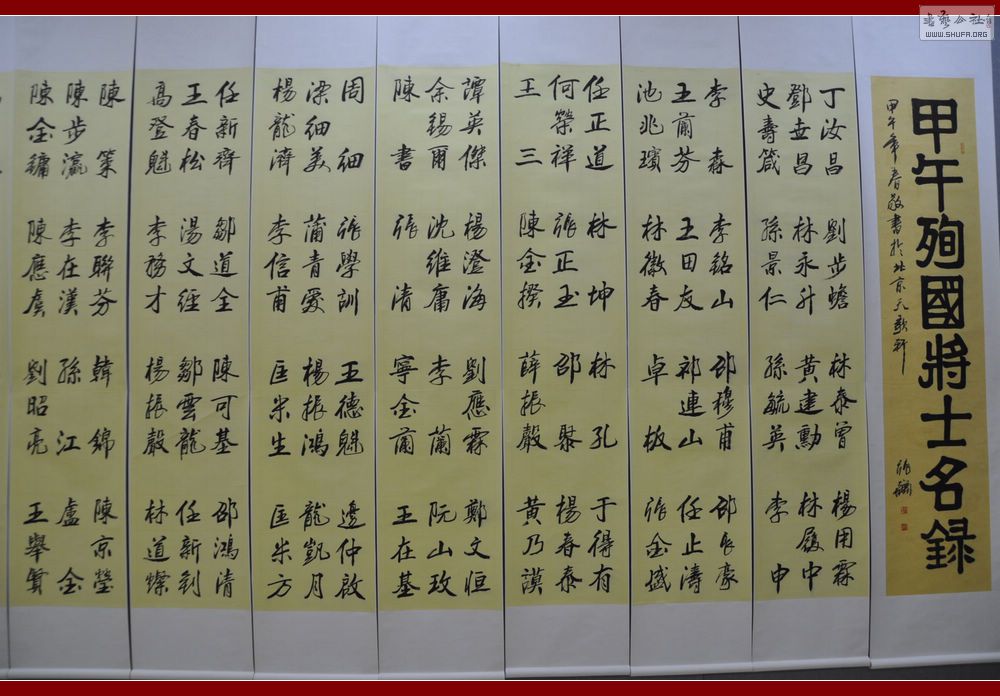 甲午殉國將士名録
甲午年春敬書於北京
丁汝昌 劉步蟾 林泰曾 楊用霖
鄧世昌 林永升 黄建勳 林履中
史壽箴 孫景仁 孫毓英 李申
李森 李銘山 邵穆甫
王蘭芬 王田友 祁連山 任止濤
池兆璸 林徽春 卓板
任正道 林坤 林孔 于得有
何榮祥 張正玉 邵聚 楊春泰
王三 陳金揆 薛振聲 黄乃謨
譚英傑 楊澄海 劉應霖 鄭文恒
余錫爾 沈維庸 李蘭 阮山玫
陳書 張清 寧金蘭 王在基
周細 張學訓 王德魁 邊仲啟
梁細美 蒲青愛 楊振鴻 龍凱月
楊龍濟 李信甫 匡米生 匡米方
任新齊 鄒道全 陳可基 邵鴻清
王春松 湯文經 鄒雲龍 任新釗
高登魁 李務才 楊振聲 林道燦
陳策 李聯芬 韓錦 陳京瑩
陳步瀛 李在漢 孫江 盧金
陳金鏞 陳應虞 劉昭亮 王舉賢
書藝公社
WWW.SHUFA.ORG